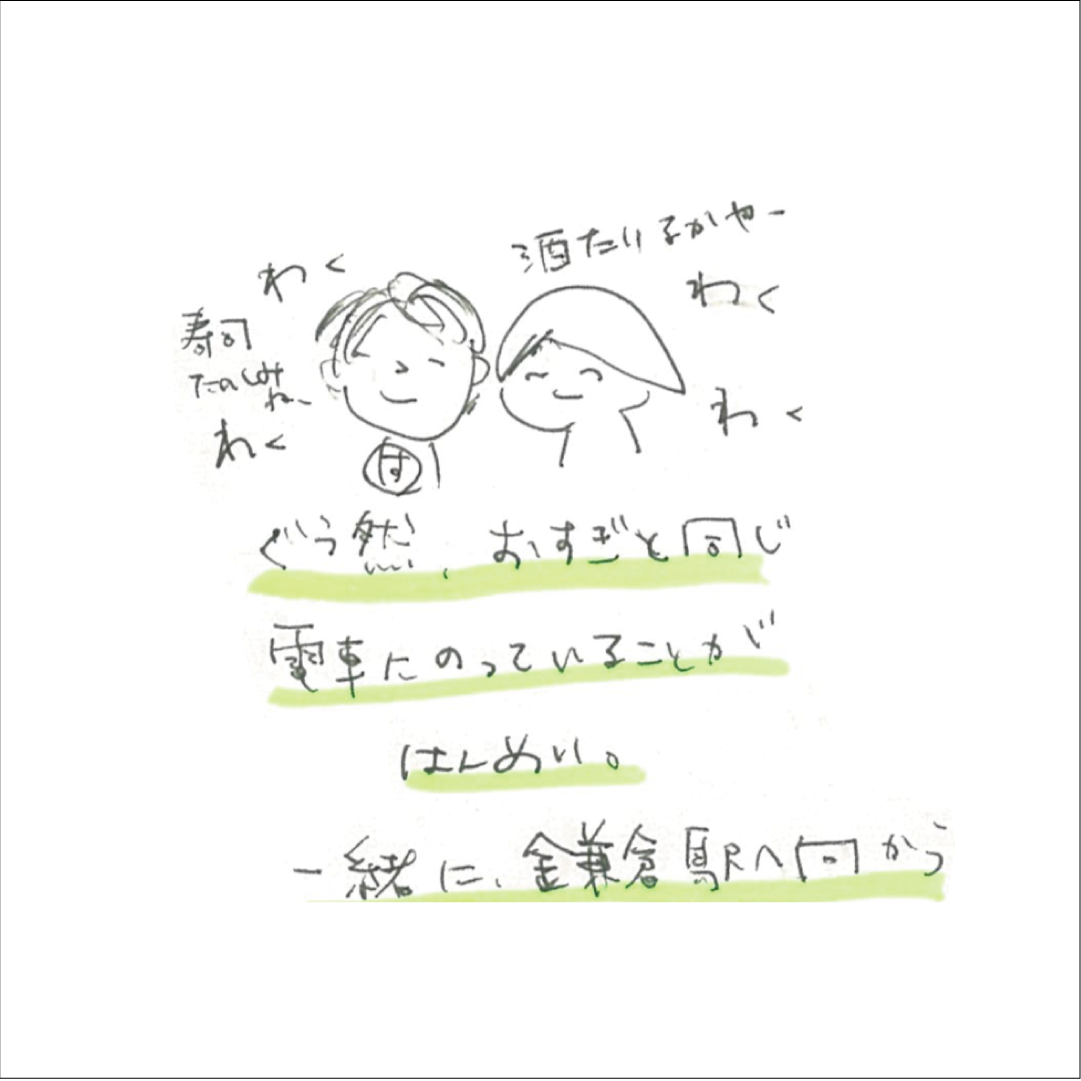 酒たりるかやー
わく
わく
寿司
たのしみ
ねー
わく
わく
は
ぐう然、おすぎと同じ
電車にのっていることが
はんめい。
一緒に、金鎌倉駅へ向かう